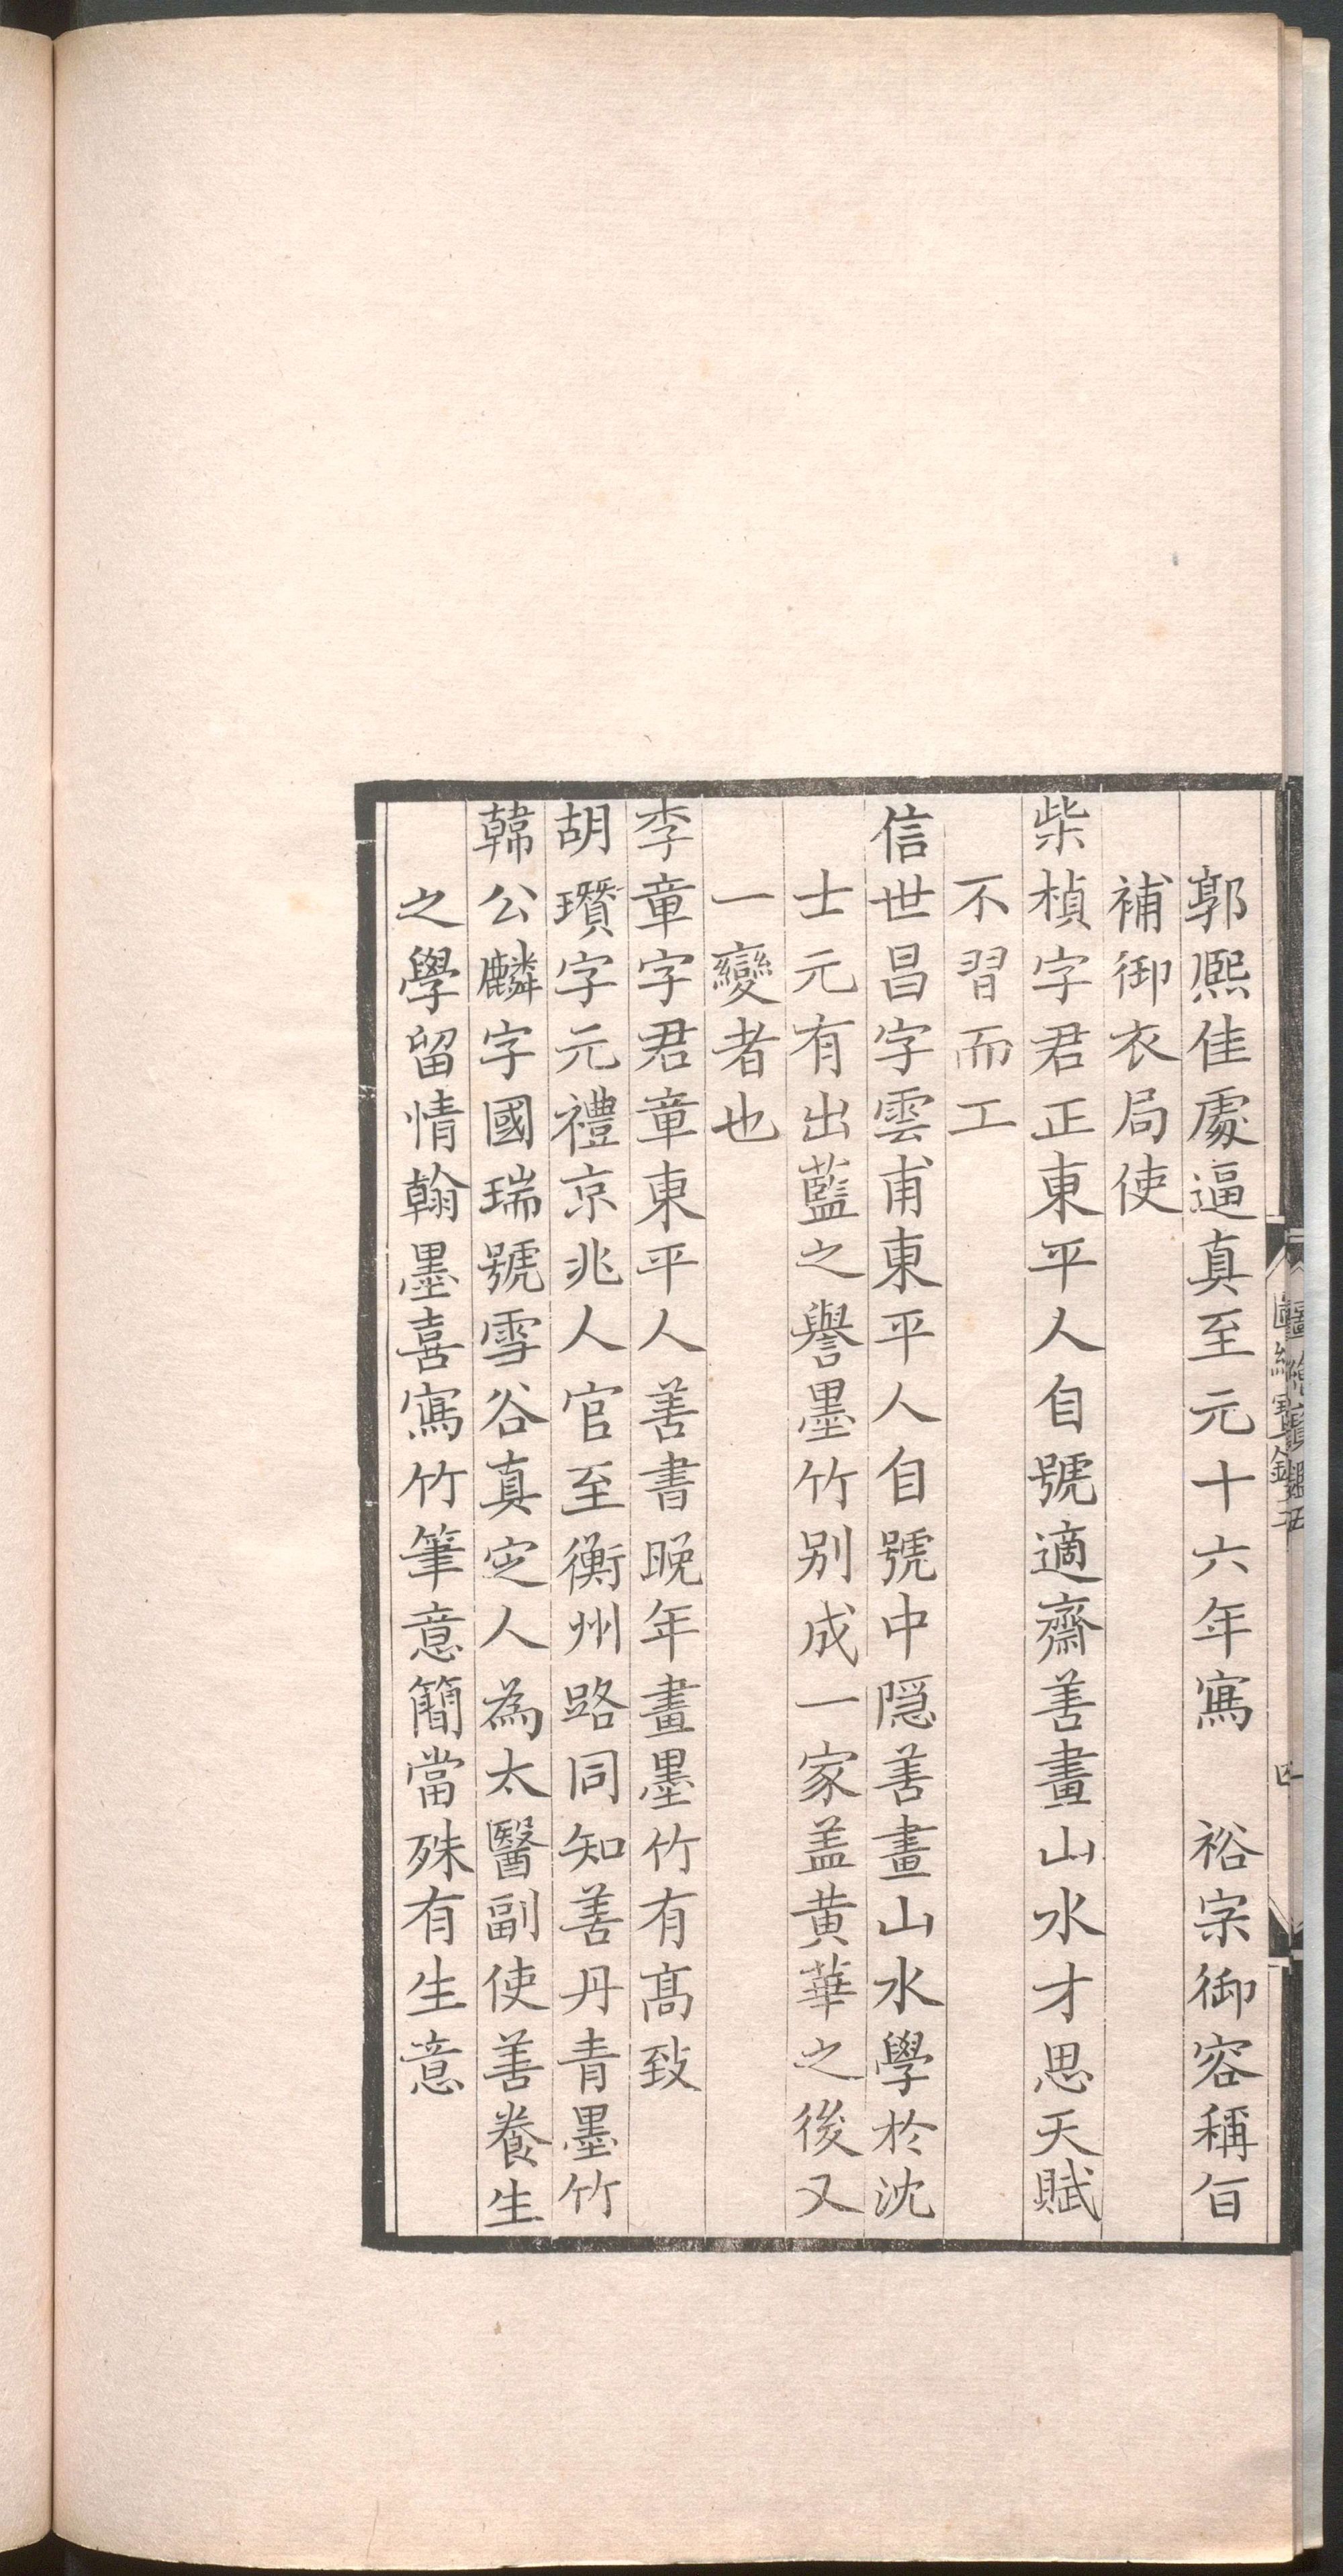 郭熈佳處逼真至元十六年寫　裕宗御容稱㫖
補御衣局使
柴楨字君正東平人自號適齋善畫山水才思天賦
不習而工
信世昌字雲甫東平人自號中隠善畫山水學於沈
士元有出藍之譽墨竹别成一家盖黄華之後又
一變者也
李章字君章東平人善書晚年畫墨竹有髙致
胡瓚字元禮京兆人官至衡州路同知善丹青墨竹
韓公麟字國瑞號雪谷真定人為太醫副使善養生
之學留情翰墨喜寫竹筆意簡當殊有生意